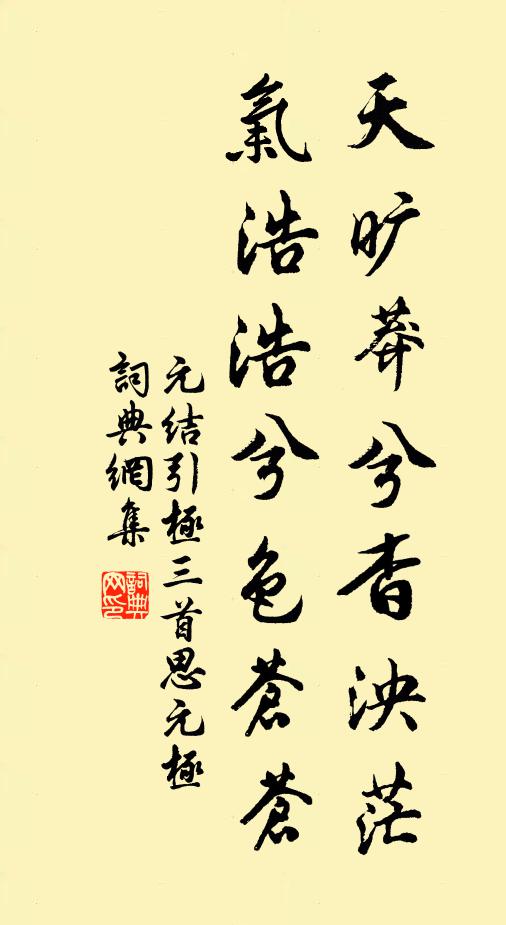 天旷莽兮杳泱茫
氣浩浩兮色蒼蒼
元结引極三首思元極
詞典網集
詞典网印